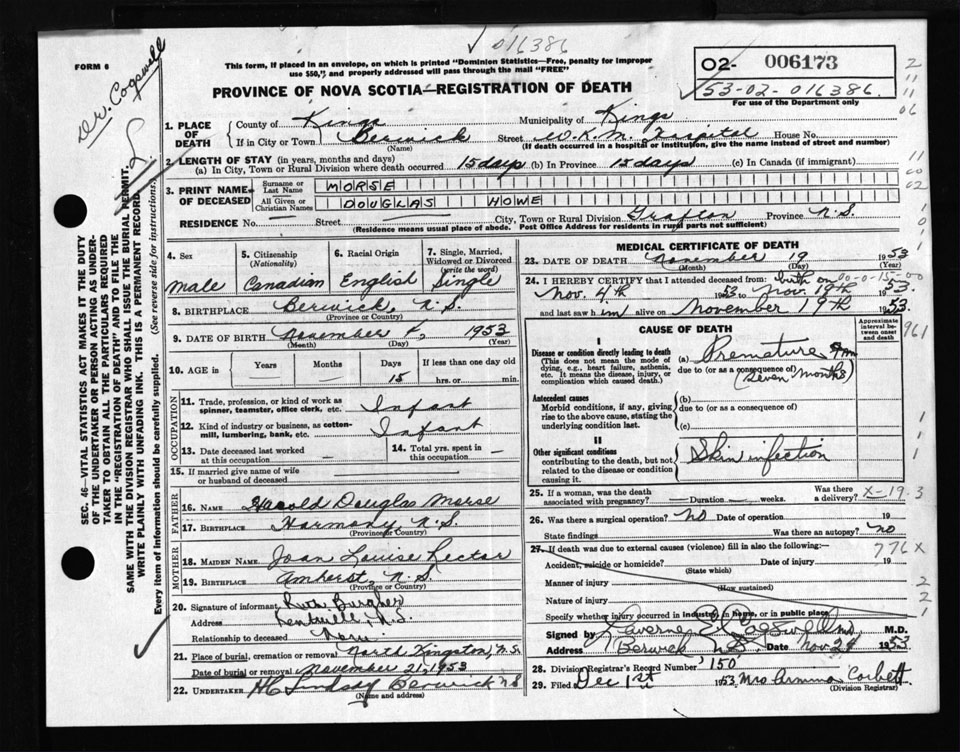 ✓016386
FORM 6
This form, if placed in an envelope, on which is printed "Dominion Statistics—Free, penalty for improper
use $50," and properly addressed will pass through the mail "FREE"
PROVINCE OF NOVA SCOTIA—REGISTRATION OF DEATH
02- 006173
53-02-016386.
For use of the Department only
Dr. Cogswell
1. PLACE OF DEATH
County of Kings Municipality of Kings
If in City or Town Berwick Street W.K.M. Hospital House No.
(Name) (If death occurred in a hospital or institution, give the name instead of street and number)
2. LENGTH OF STAY (in years, months and days)
(a) In City, Town or Rural Division where death occurred 15 days (b) In Province 15 days (c) In Canada (if immigrant)
3. PRINT NAME OF DECEASED
Surname or Last Name MORSE
All Given or Christian Names DOUGLAS HOWE
RESIDENCE No. Street City, Town or Rural Division Grafton Province N.S.
(Residence means usual place of abode. Post Office Address for residents in rural parts not sufficient)
4. Sex Male
5. Citizenship (Nationality) Canadian
6. Racial Origin English
7. Single, Married, Widowed or Divorced (write the word) Single
8. BIRTHPLACE Berwick N.S.
(Province or Country)
9. DATE OF BIRTH November 1953
(Month) (Day) (Year)
10. AGE in Years Months Days 15 If less than one day old hrs. or min.
OCCUPATION
11. Trade, profession, or kind of work as spinner, teamster, office clerk, etc. Infant
12. Kind of industry or business, as cotten-mill, lumbering, bank, etc. Infant
13. Date deceased last worked at this occupation —
14. Total yrs. spent in this occupation —
15. If married give name of wife or husband of deceased
FATHER
16. NAME Harold Douglas Morse
17. BIRTHPLACE Harmony, N.S.
(Province or Country)
MOTHER
18. MAIDEN NAME Joan Louise Rector
19. BIRTHPLACE Amherst, N.S.
(Province or Country)
20. Signature of informant Ruth Burgher
Address Kentville, N.S.
Relationship to deceased
21. Place of burial, cremation or removal North Kingston, N.S.
Date of burial or removal November 21, 1953
22. UNDERTAKER H C Lindsay Berwick NS
(Name and address)
MEDICAL CERTIFICATE OF DEATH
23. DATE OF DEATH November 19 1953
(Month) (Day)
24. I HEREBY CERTIFY that I attended deceased from: birth on 00-0-15-00
Nov. 4th 1953 to Nov. 19th 1953.
and last saw him alive on November 19th 1953.
CAUSE OF DEATH
Approximate interval between onset and death
I
Disease or condition directly leading to death
(This does not mean the mode of dying, e.g., heart failure, asthenia, etc. It means the disease, injury, or complication which caused death.
(a) Premature
due to (or as a consequence of)
(seven months)
Antecedent causes
Morbid conditions, if any, giving rise to the above cause, stating the underlying condition last.
(b)
due to (or as a consequence of)
(c)
II
Other significant conditions
contributing to the death, but not related to the disease or condition causing it.
Skin infection
25. If a woman, was the death associated with pregnancy? — Duration — weeks. Was there a delivery? X-19.3
26. Was there a surgical operation? no Date of operation 19
State findings Was there an autopsy? no
27. If death was due to external causes (violence) fill in also the following:— 776X
Accident, suicide or homicide? Date of injury 19
(State which)
Manner of injury
(How sustained)
Nature of injury
Specify whether injury occurred in industry, in home, or in public place
Signed by Laverne E Cogswell M.D.
Address Berwick N.S. Date Nov. 21 1953
28. Division Registrar's Record Number 150
29. Filed Dec 1st 1953 Mrs Ormina Corbett
(Division Registrar)
SEC. 46—VITAL STATISTICS ACT MAKES IT THE DUTY
OF THE UNDERTAKER OR PERSON ACTING AS UNDER-
TAKER TO OBTAIN ALL THE PARTICULARS REQUIRED
IN THE "REGISTRATION OF DEATH" AND TO FILE THE
SAME WITH THE DIVISION REGISTRAR WHO SHALL ISSUE THE BURIAL PERMIT.
WRITE PLAINLY WITH UNFADING INK. THIS IS A PERMANENT RECORD.
Every item of information should be carefully supplied. (See reverse side for instructions.)
2
11
06
11
00
02
961
2
2
1